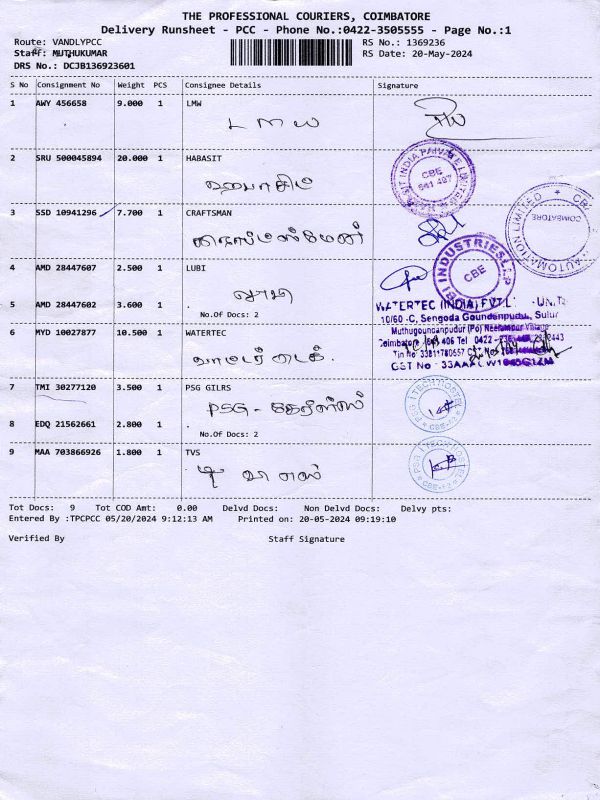 THE PROFESSIONAL COURIERS, COIMBATORE
Delivery Runsheet - PCC - Phone No.:0422-3505555 - Page No.:1
Route: VANDLYPCC RS No.: 1369236
Staff: MUTHUKUMAR RS Date: 20-May-2024
DRS No.: DCJB136923601
S No Consignment No Weight PCS Consignee Details Signature
1 AWY 456658 9.000 1 LMW
L M W
2 SRU 500045894 20.000 1 HABASIT
CBE
641 407
3 SSD 10941296 7.700 1 CRAFTSMAN
AUTOMATION LIMITED
COIMBATORE
4 AMD 28447607 2.500 1 LUBI
INDUSTRIES LLP
CBE
லுபி
5 AMD 28447602 3.600 1 .
No.Of Docs: 2
WATERTEC (INDIA) PVT L UNIT
10/60 -C, Sengoda Goundenpudur, Sulur
6 MYD 10027877 10.500 1 WATERTEC
Muthugoundanpudur (Po) Neelampur Village
Coimbatore 641 406 Tel 0422
Tin No 33811780557
GST No
வாடடர் டெக்.
7 TMI 30277120 3.500 1 PSG GILRS
PSG I TECH HOSTEL
PSG - கேர்ள்ஸ்
8 EDQ 21562661 2.800 1 .
No.Of Docs: 2
9 MAA 703866926 1.800 1 TVS
PSG I TECH
டி வி எஸ்
Tot Docs: 9 Tot COD Amt: 0.00 Delvd Docs: Non Delvd Docs: Delvy pts:
Entered By :TPCPCC 05/20/2024 9:12:13 AM Printed on: 20-05-2024 09:19:10
Verified By Staff Signature